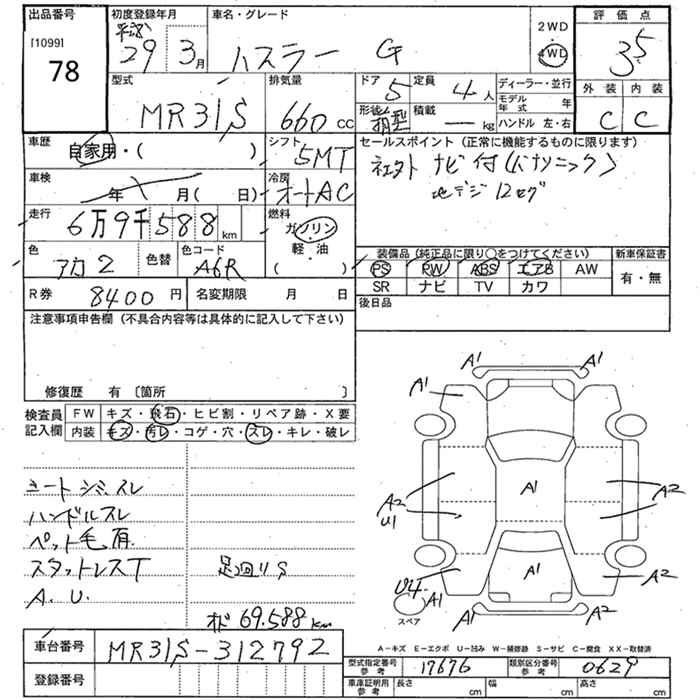 出品番号
[1099]
78
初度登録年月
平成
29年 3月
車名・グレード
ハスラー G
2WD
4WD
評価点
3.5
外装 内装
C C
型式
MR31S
排気量
660 cc
ドア
5
定員
4人
形状
箱型
積載
— kg
ディーラー・並行
モデル年式 年
ハンドル 左・右
車歴
自家用・( )
シフト
5MT
セールスポイント (正常に機能するものに限ります)
ナビ付(パナソニック)
地デジ 12セグ
車検
年 月( 日)
冷房
オートAC
走行
6万9千588 km
燃料
ガソリン
軽・油
( )
色
アカ2
色替
色コード
A6R
装備品 (純正品に限り○をつけてください)
PS PW ABS エアB AW
SR ナビ TV カワ
新車保証書
有・無
R券
8400円
名変期限 月 日
後日品
注意事項申告欄 (不具合内容等は具体的に記入して下さい)
修復歴 有 〔箇所 〕
検査員記入欄
FW キズ・飛石・ヒビ割・リペア跡・X要
内装 キズ・汚レ・コゲ・穴・スレ・キレ・破レ
シートシミ、スレ
ハンドルスレ
ペット毛有
スタットレスT
A.U.
足廻りS
オド 69.588km
A1 A1
A1
A1
A2 A2
U1
A1
U4 A1 A2
スペア
A-キズ E-エクボ U-凹み W-補修跡 S-サビ C-腐食 XX-取替済
車台番号
MR31S-312792
登録番号
型式指定番号 参考
17676
類別区分番号 参考
0629
車庫証明用 参考
長さ cm 幅 cm 高さ cm